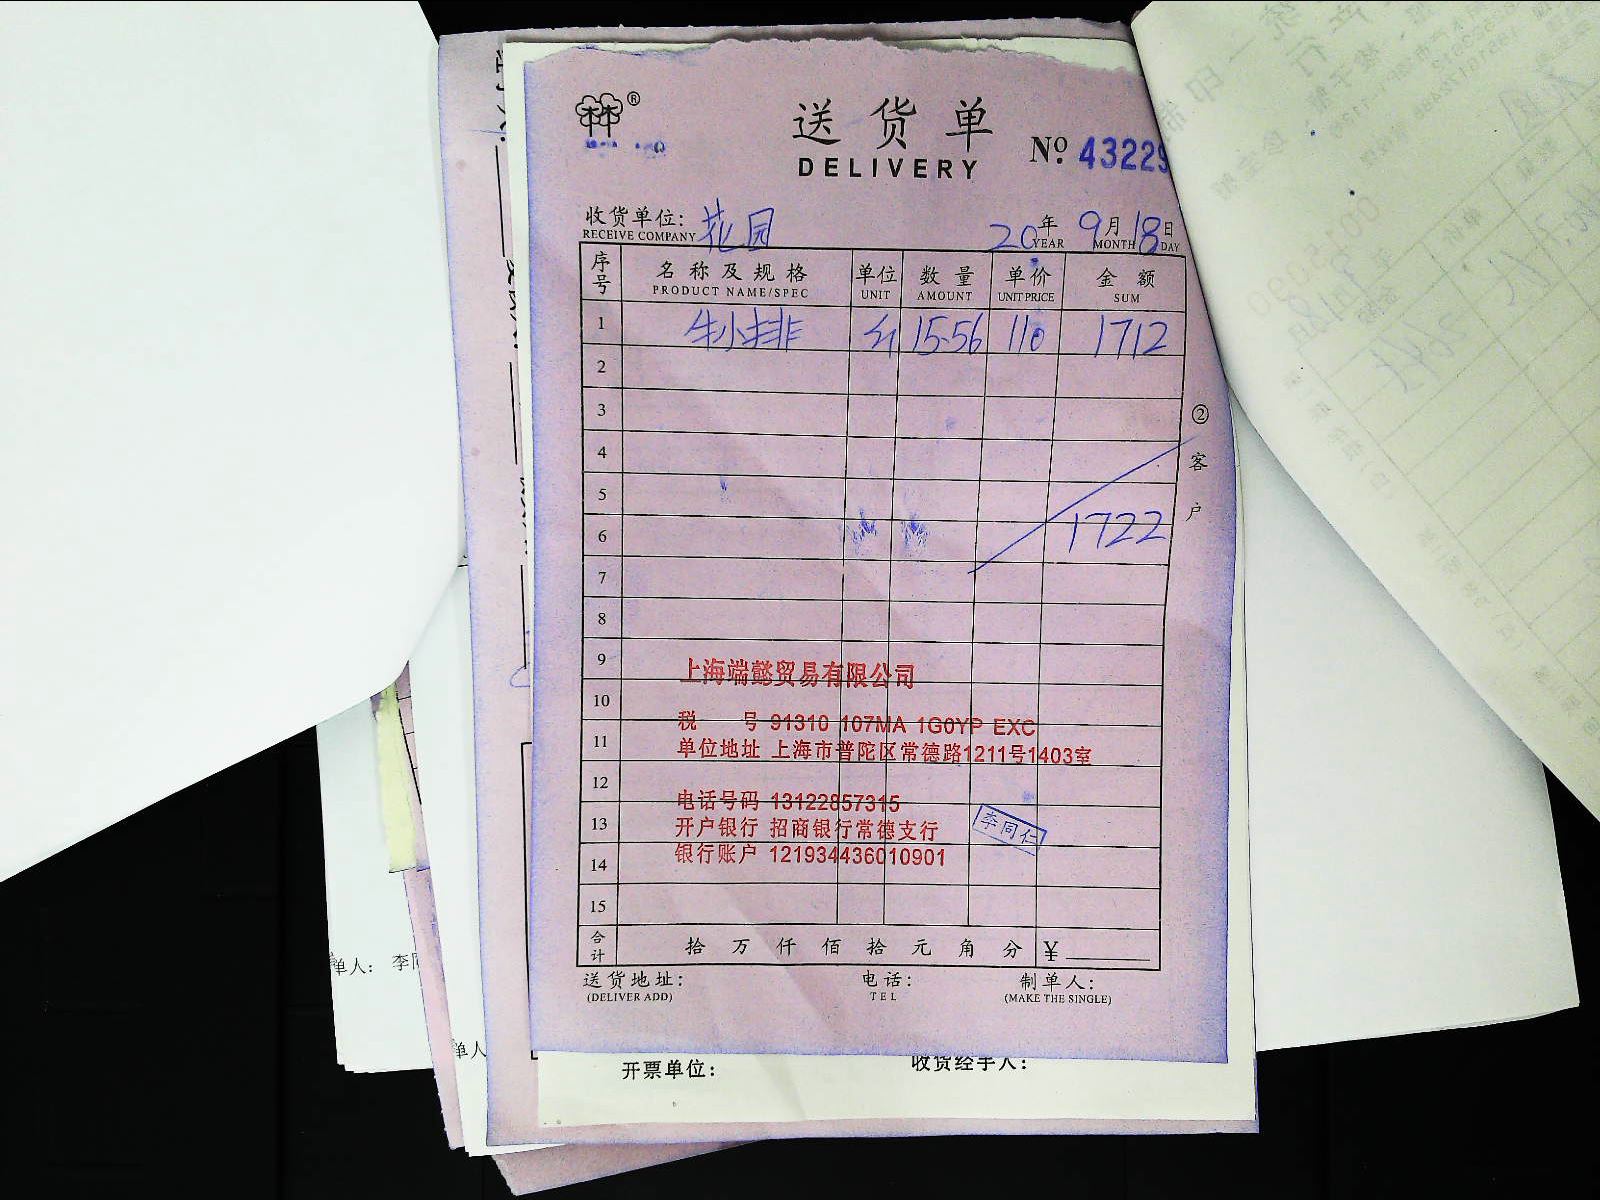 ®
送货单
DELIVERY
№ 43229
收货单位: 花园
RECEIVE COMPANY
20年 9月 18日
YEAR MONTH DAY
序号 名称及规格 单位 数量 单价 金额
PRODUCT NAME/SPEC UNIT AMOUNT UNIT PRICE SUM
1 牛小排 15.56 110 1712
2
3
4
5
6 1722
7
8
9
10
11
12
13
14
15
②客户
上海端懿贸易有限公司
税 号 91310 107MA 1G0YP EXC
单位地址 上海市普陀区常德路1211号1403室
电话号码 13122857315
开户银行 招商银行常德支行
银行账户 121934436010901
李同仁
合计 拾 万 仟 佰 拾 元 角 分 ¥
送货地址: 电话: 制单人:
(DELIVER ADD) TEL (MAKE THE SINGLE)
开票单位: 收货经手人:
单人: 李
单人